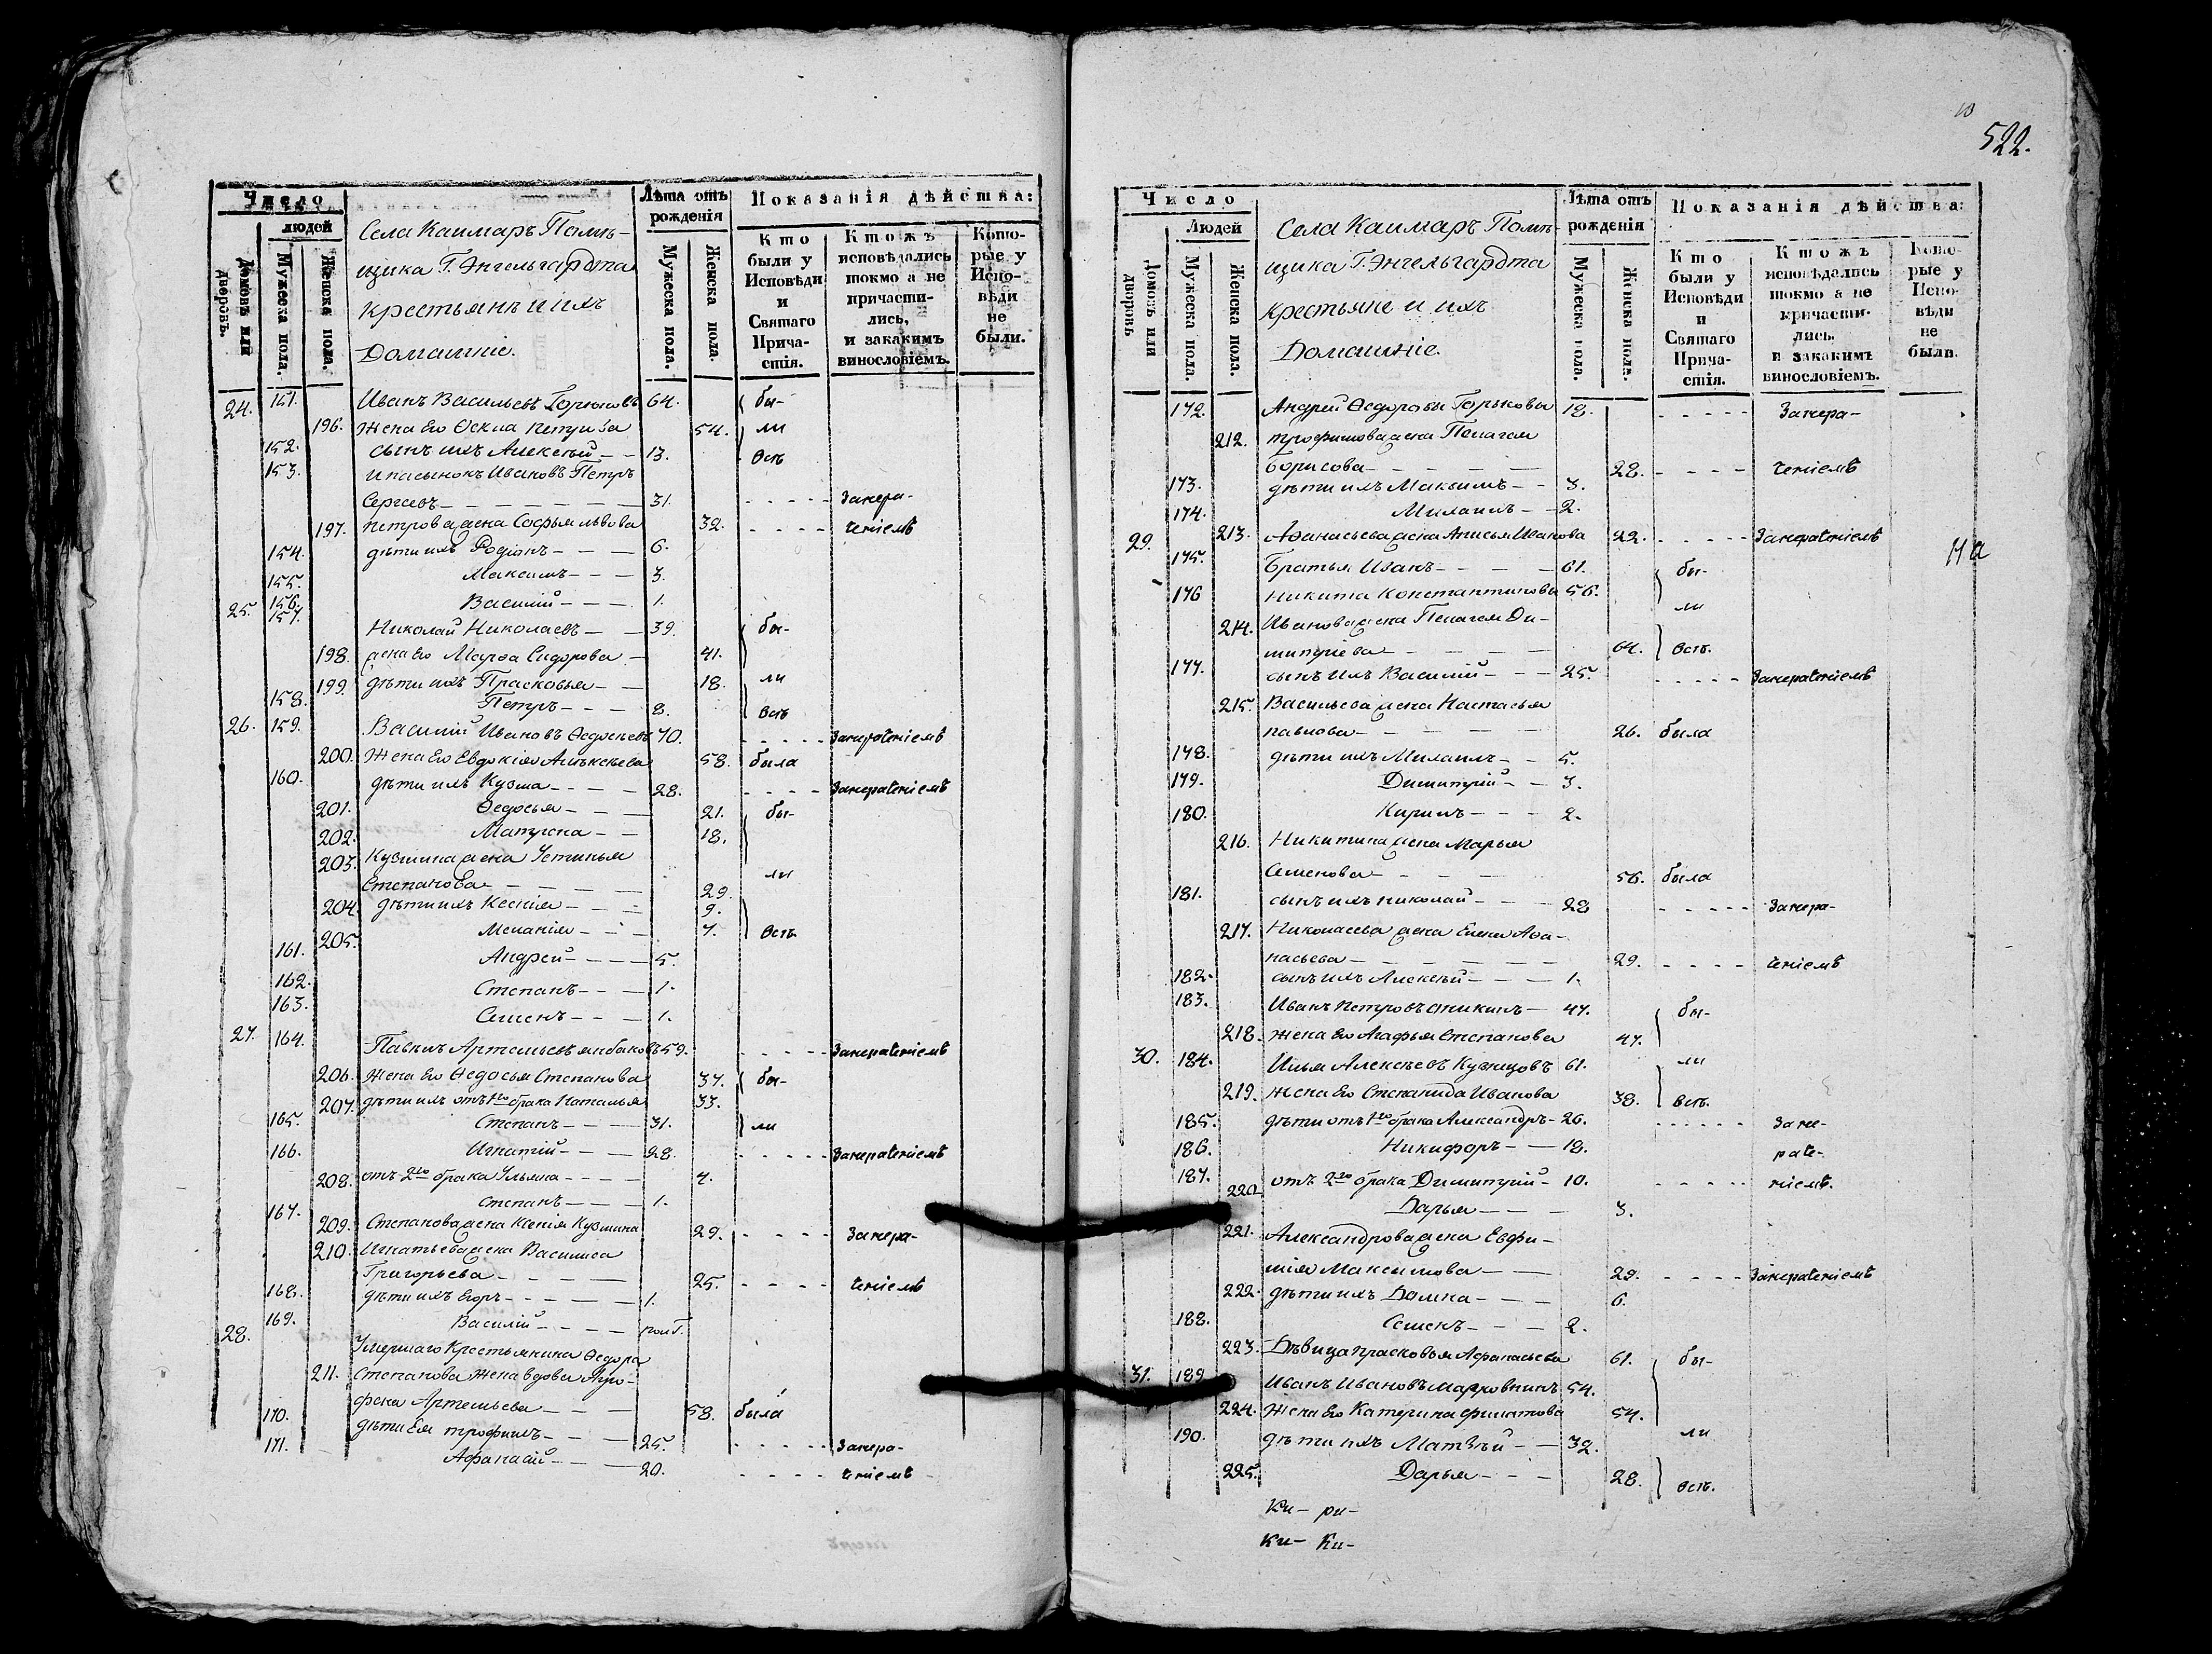 Число
людей
Домовъ или дворовъ.
Мужеска пола.
Женска пола.
Села Каимаръ Помѣ-
щика Г. Энгельгардта
крестьянъ и ихъ
Домашніе.
Лѣта отъ рожденія
Мужеска пола.
Женска пола.
Показанія дѣйства:
Кто были у Исповѣди и Святаго Прича-стія.
Ктожъ исповѣдались токмо а не причасти-лись, и закакимъ винословіемъ.
Кото-рые у Испо-вѣди не были.
24. 151. Иванъ Васильевъ 64. бы-
196. Жена Его 54. ли
152. сынъ ихъ Алексѣй 13. всѣ
153. и пасынокъ Ивановъ Петръ
Сергеевъ 31. Занера-
197. петрова жена Софья Львова 32. чениемъ
154. дѣти ихъ Родіонъ 6.
155. Максимъ 3.
156. Василій 1.
25. 157. Николай Николаевъ 39. бы-
198. жена Его Марѳа Сидорова 41.
199. дѣти ихъ Прасковья 18. ли
158. Петръ 8. всѣ
26. 159. Василий Ивановъ 70. Занерачениемъ
200. Жена Его Евдокія Алѣксѣева 58. была
160. дѣти ихъ Кузма 28. Занерачениемъ
201. Ѳедосья 21. бы-
202. Матрена 18.
203. Кузмина жена Устинья
Степанова 29. ли
204. дѣти ихъ Ксенія 9.
205. Меланія 7. всѣ
161. Андрей 5.
162. Степанъ 1.
163. Семенъ 1.
27. 164. Павилъ Артемьевъ 59. Занерачениемъ
206. Жена Его Ѳедосья Степанова 37. бы-
207. дѣти ихъ отъ 1го брака Наталья 33.
165. Степанъ 31. ли
166. Игнатій 28. Занерачениемъ
208. отъ 2го брака Ульяна 4.
167. степанъ 1.
209. Степанова жена Ксенія Кузмина 29. Занера-
210. Игнатьева жена Василиса
Григорьева 25. чениемъ
168. дѣти ихъ Егоръ 1.
169. Василій пол Г.
28. Умершаго Крестьянина Ѳедора
211. Степанова Жена вдова Агро-
фена Артемьева 58. была
170. дѣти Ея трофимъ 25. Занера-
171. Афанасій 20. чениемъ
10
522.
Число
Людей
Домовъ или дворовъ
Мужеска пола.
Женска пола.
Села Каимаръ Помѣ-
щика Г. Энгельгардта
крестьяне и ихъ
Домашніе.
Лѣта отъ рожденія
Мужеска пола.
Женска пола.
Показанія дѣйства:
Кто были у Исповѣди и Святаго Прича-стія.
Ктожъ исповѣдались токмо а не причасти-лись, и закакимъ винословіемъ.
Кото-рые у Испо-вѣди не были.
172. Андрей Ѳедоровы Горьковы 18. Занера-
212. трофимова жена Пелагея
Борисова 28. чениемъ
173. дѣти ихъ Максимъ 3.
174. Михаилъ 2.
213. Афанасьева жена Анисья Иванова 22. Занерачениемъ
29. 175. Братья Иванъ 61. бы-
176 Никита Константиновы 56. ли
214. Иванова жена Пелагея Ди-
митріева 64. всѣ.
177. сынъ ихъ Василій 25. Занерачениемъ
215. Васильева жена Настасья
павлова 26. была
178. дѣти ихъ Михаилъ 5.
179. Димитрій 3.
180. Кирилъ 2.
216. Никитина жена Марья
Семенова 56. была
181. сынъ ихъ николай 28 Занера-
217. Николаева жена Елена Афа-
насьева 29. чениемъ
182. сынъ ихъ Алексѣй 1.
183. Иванъ Петровъ 47. бы-
218. жена Его Агафья Степанова 47.
30. 184. Илья Алексѣевъ Кузнецовъ 61. ли
219. Жена Его Степанида Иванова 38. всѣ.
185. дѣти отъ 1го брака Александръ 26. Зане-
186. Никифоръ 18. раче-
187. отъ 2го брака Димитрий 10. ниемъ.
220 Дарья 3.
221. Александрова жена Евфи-
мія Максимова 29. Занерачениемъ
222. дѣти ихъ Домна 6.
188. Семенъ 2.
223. Дѣвица прасковья Афанасьева 61. бы-
31. 189 Иванъ Ивановъ 54.
224. Жена Его Катерина филатова 54. ли
190. дѣти ихъ Матвѣй 32.
225. Дарья 28. всѣ.
Ки- ри-
Ки- Ки-